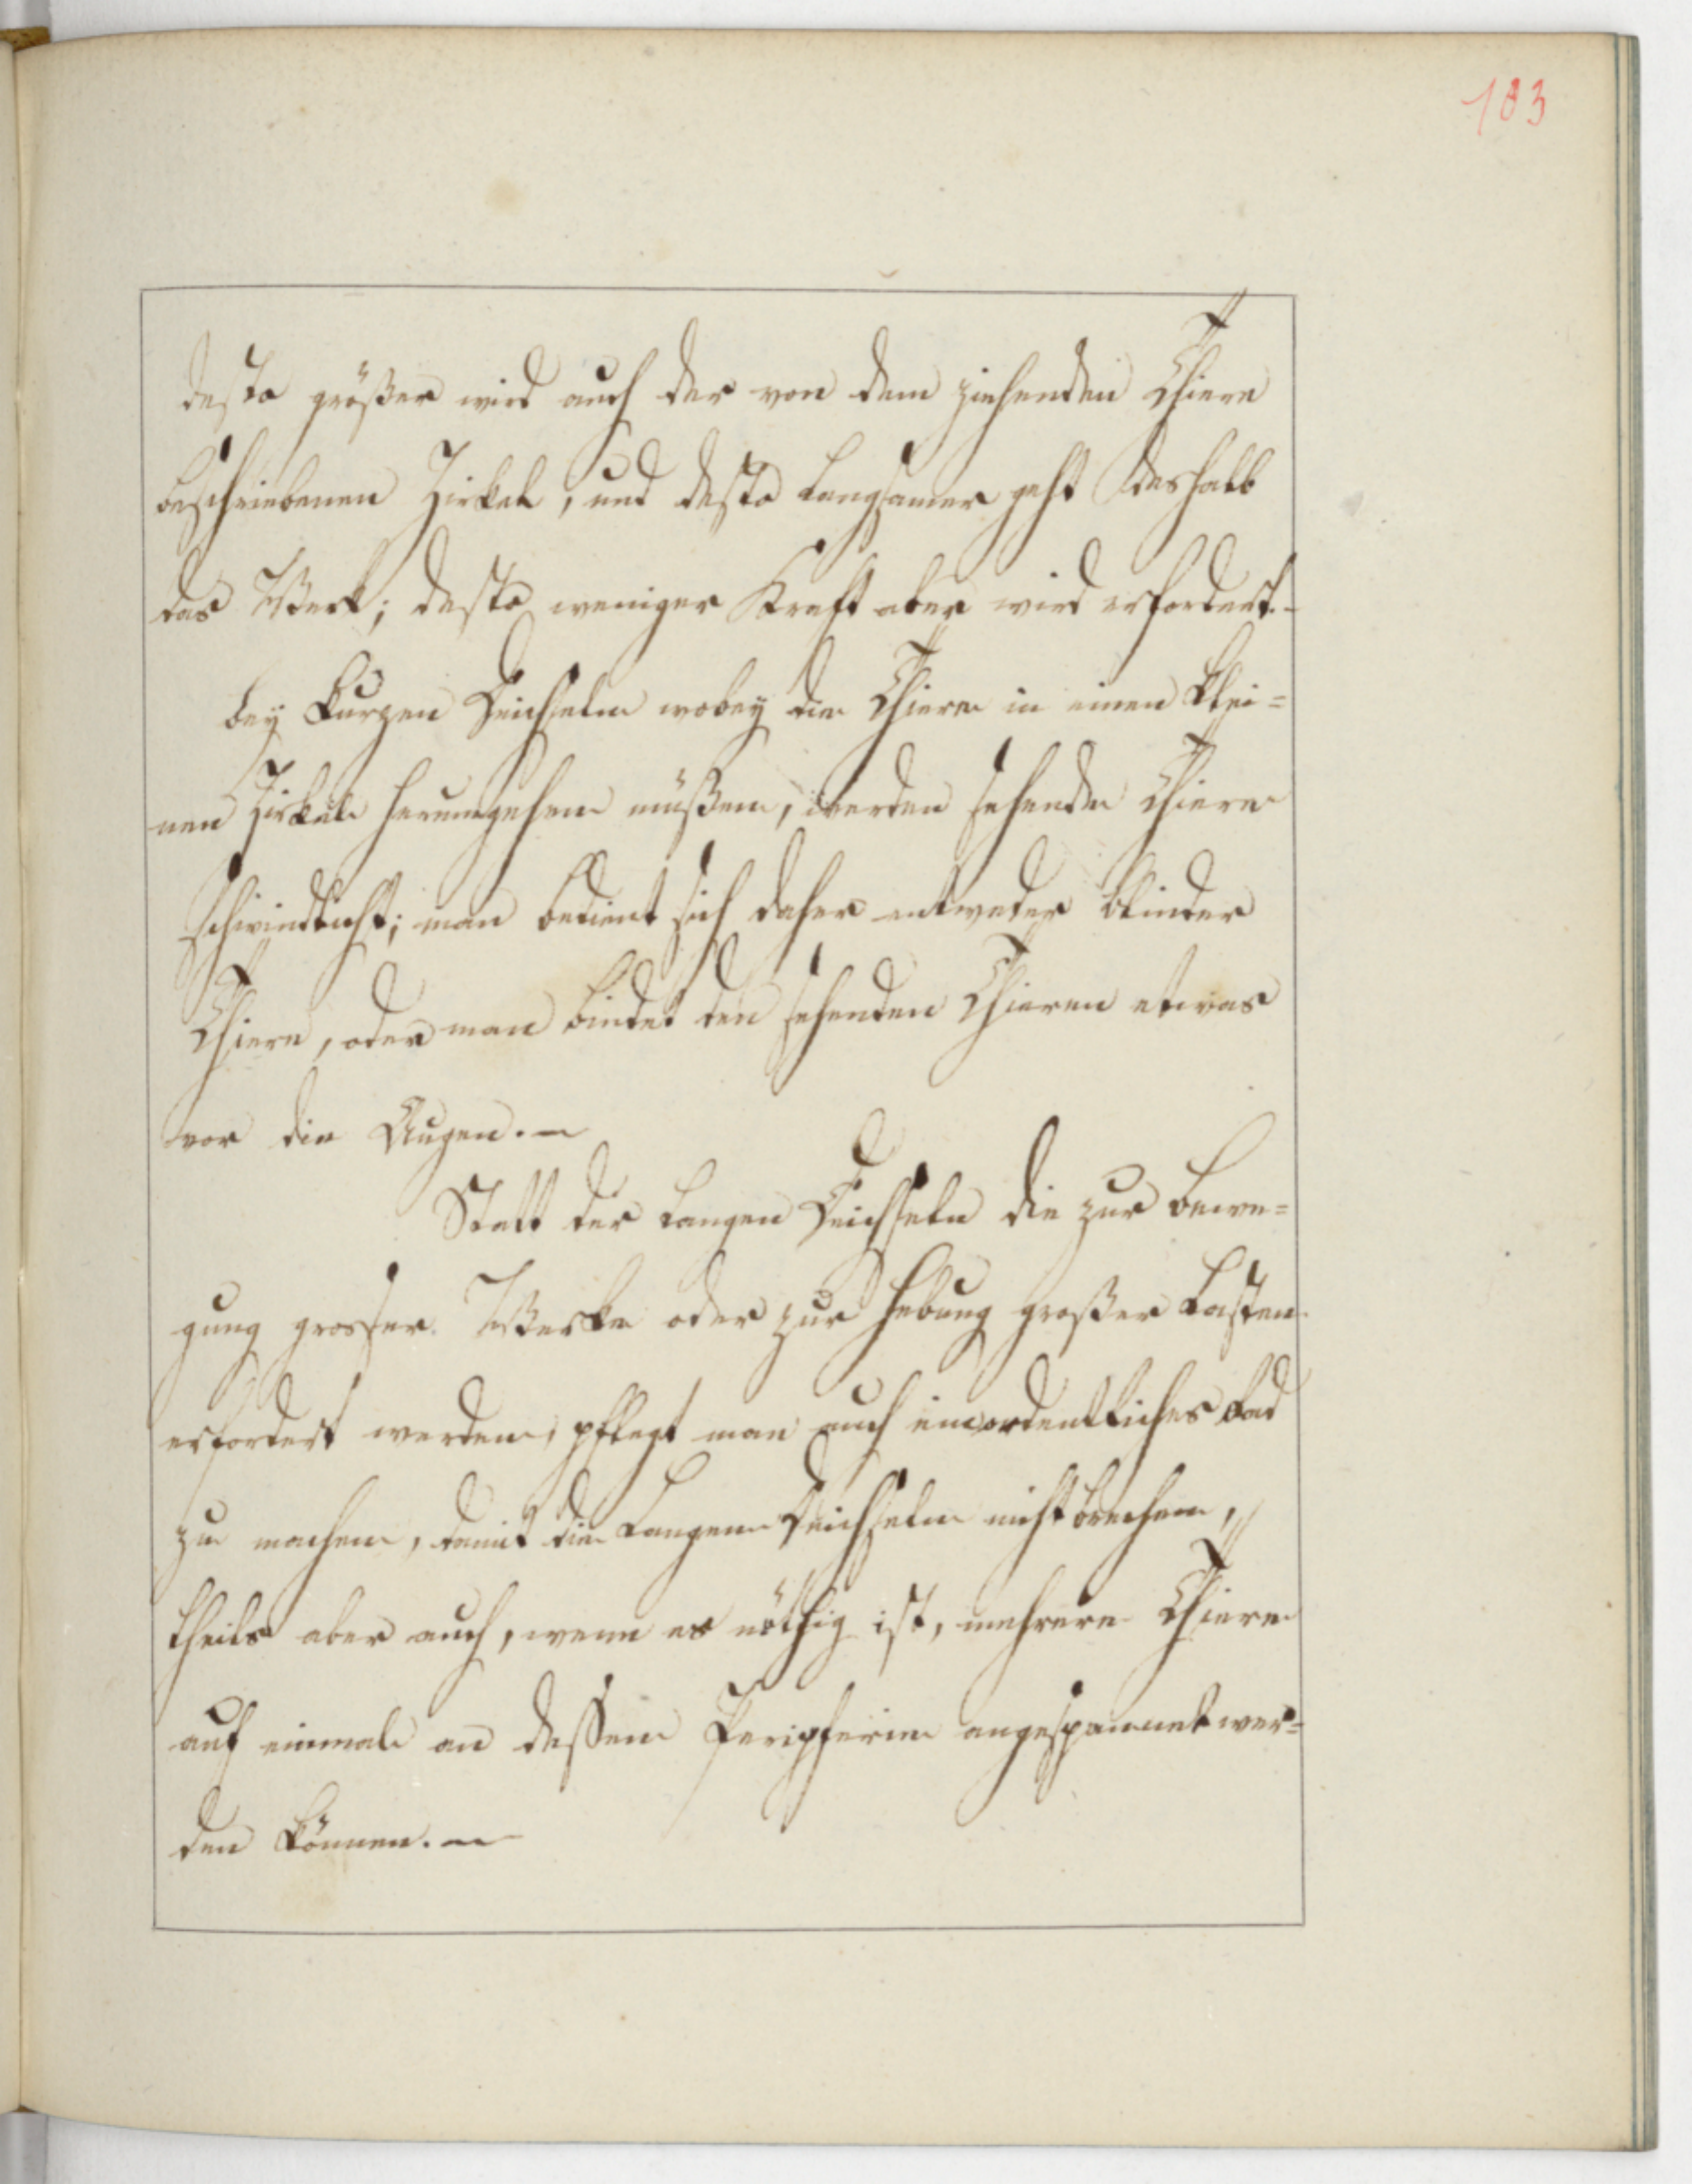 103
desto größer wird auch der von dem ziehenden Thiere
beschriebenen Zirkel, und desto langsamer geht deshalb
das Werk; desto weniger Kraft aber wird erfordert.-
bey kurzen Deichseln wobey die Thiere in einen klei=
nen Zirkel herumgehen müßen, werden sehende Thiere
schwindlicht; man bedient sich daher entweder blinder
Thiere, oder man bindet den sehenden Thieren etwas
vor die Augen. —
Statt der langen Deichseln die zur Bewe=
gung grosser Werke oder zur Hebung großer Lasten
erfordert werden, pflegt man auch ein ordentliches Rad
zu machen, damit die langen Deichseln nicht brechen,
theils aber auch, wenn es nöthig ist, mehrere Thiere
auf einmal an dessen Peripherie angespannet wer=
den können. —